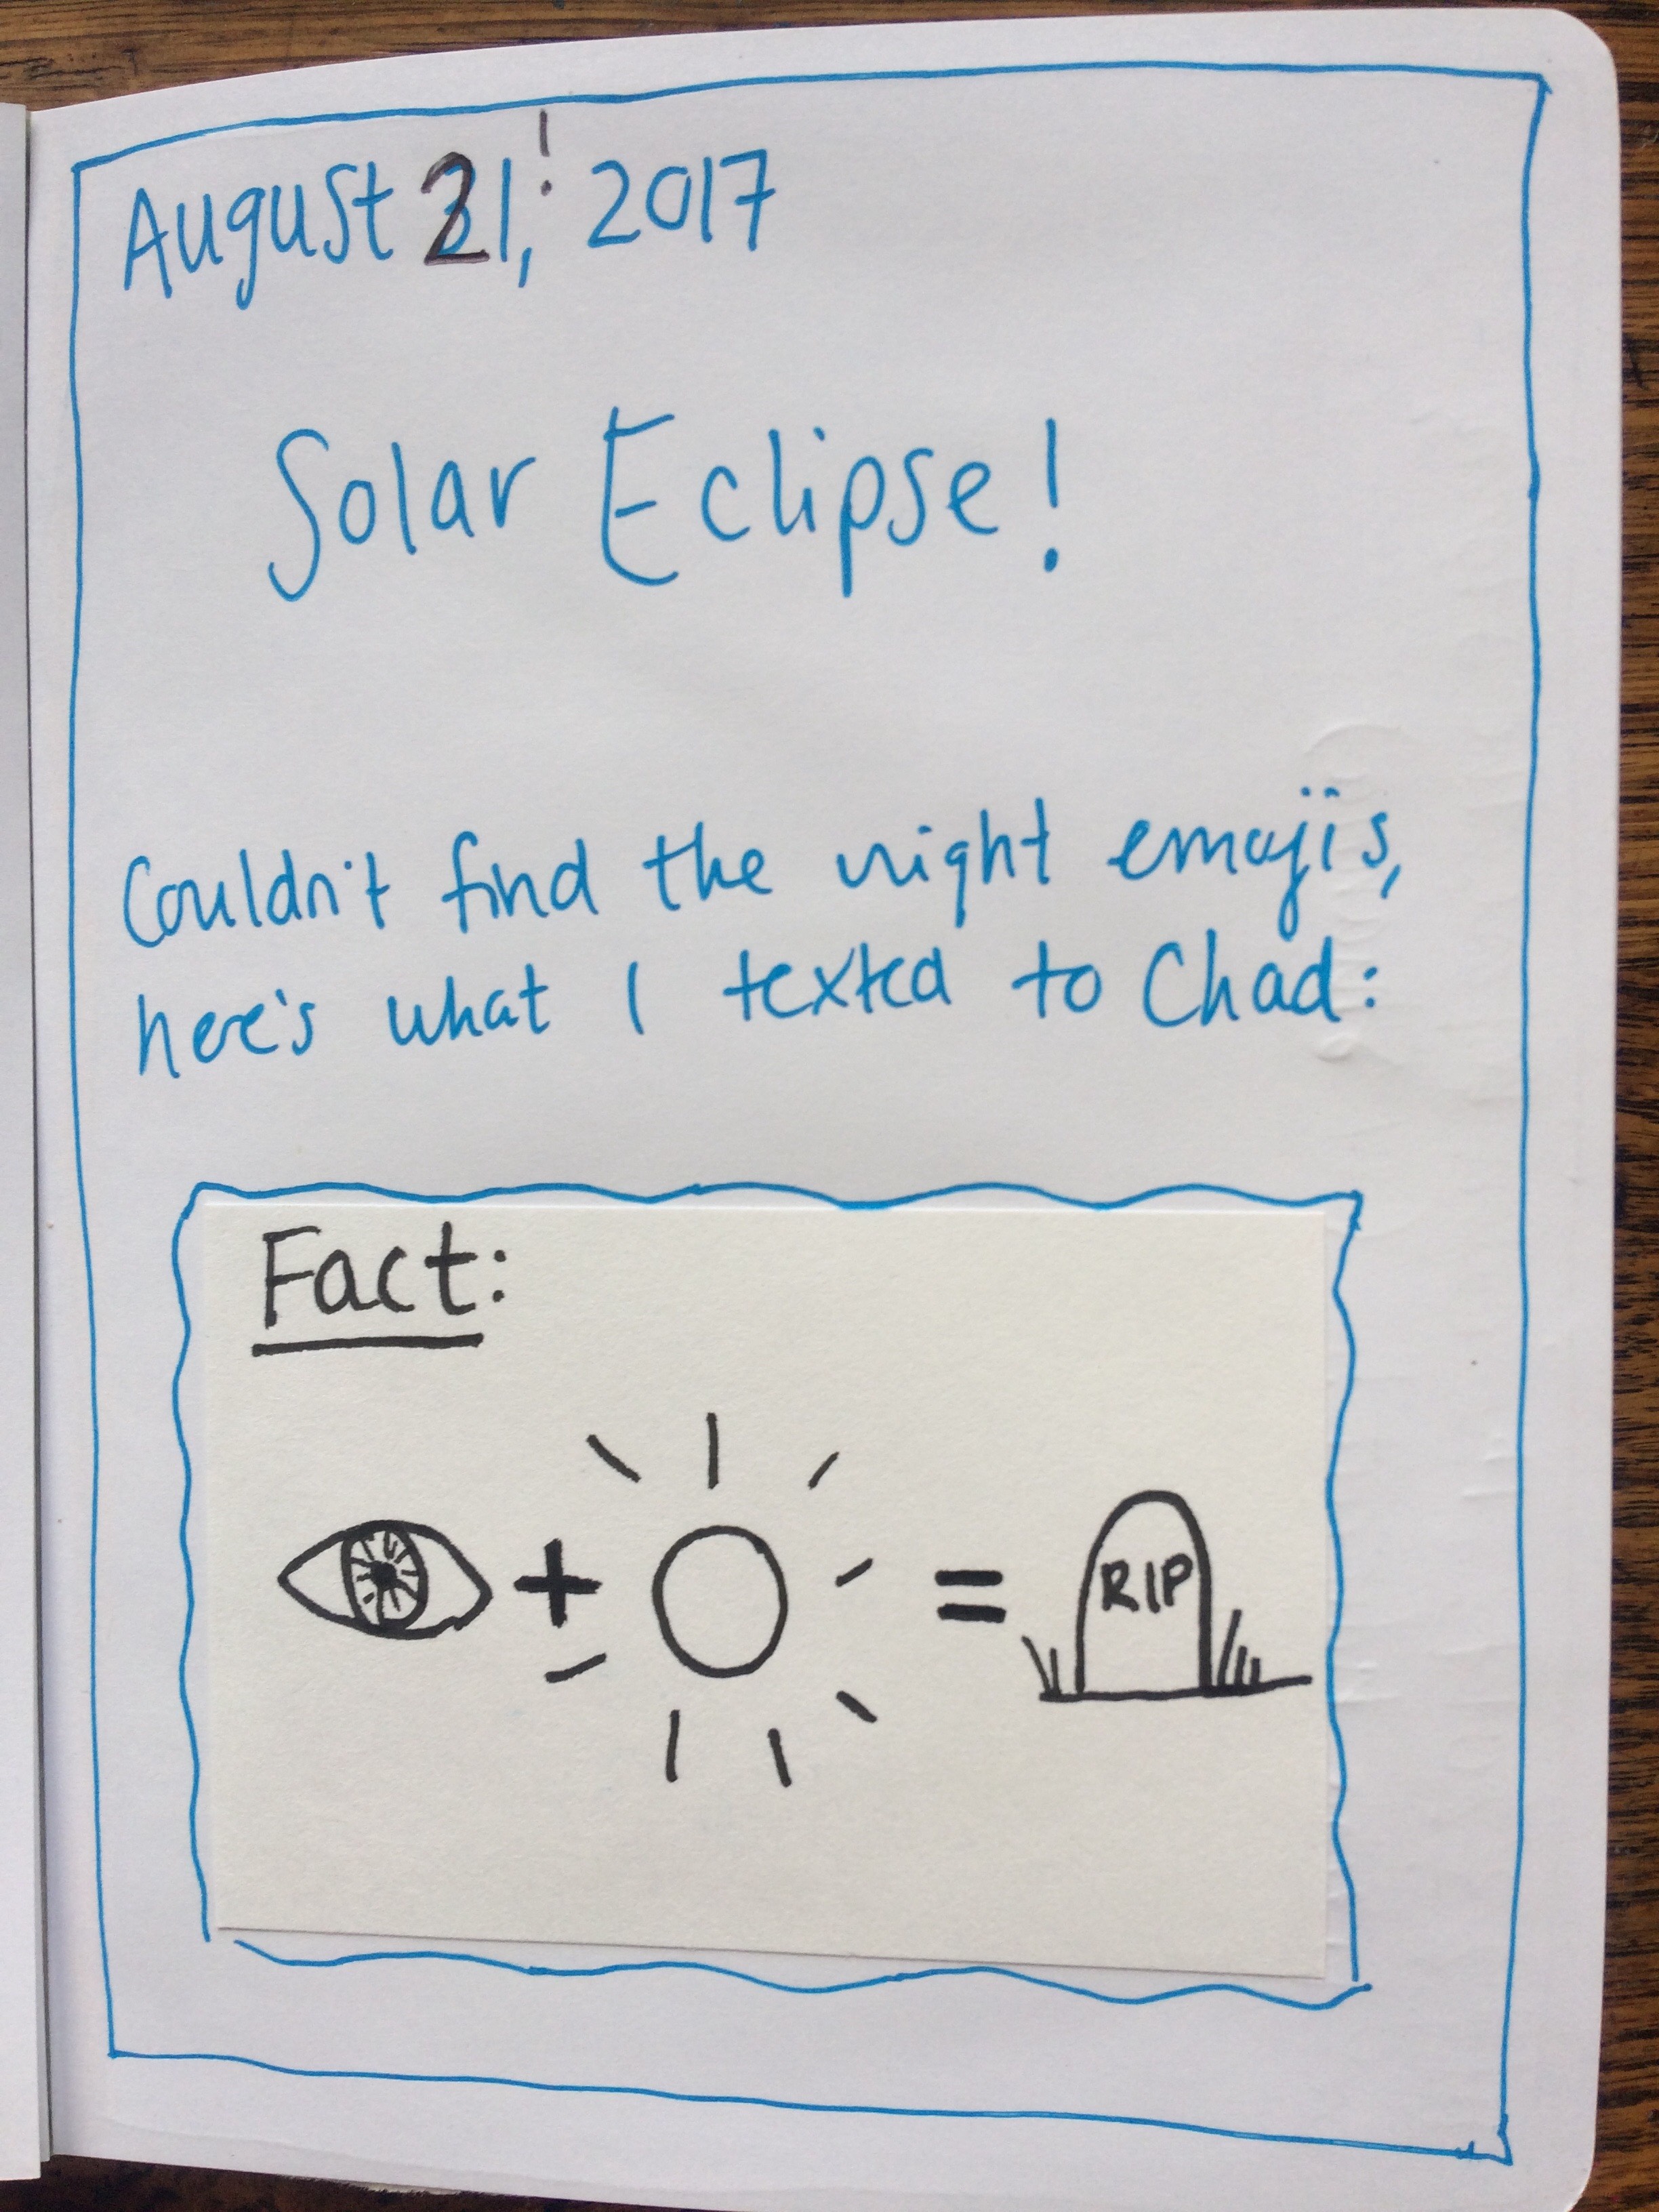 August 21!, 2017
Solar Eclipse!
Couldn't find the right emojis,
here's what I texted to Chad:
Fact:
+ = RIP